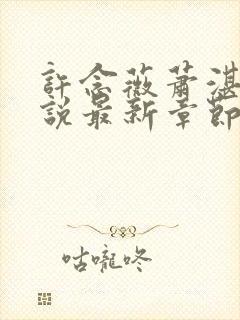 許念薇蕭湛
說最新章節
咕嚨咚